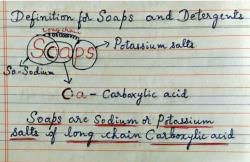 Definition for Soaps and Detergents
Long chain
Soaps
Potassium salts
So-Sodium
C a - Carboxylic acid
Soaps are Sodium or Potassium
salts of long chain Carboxylic acid